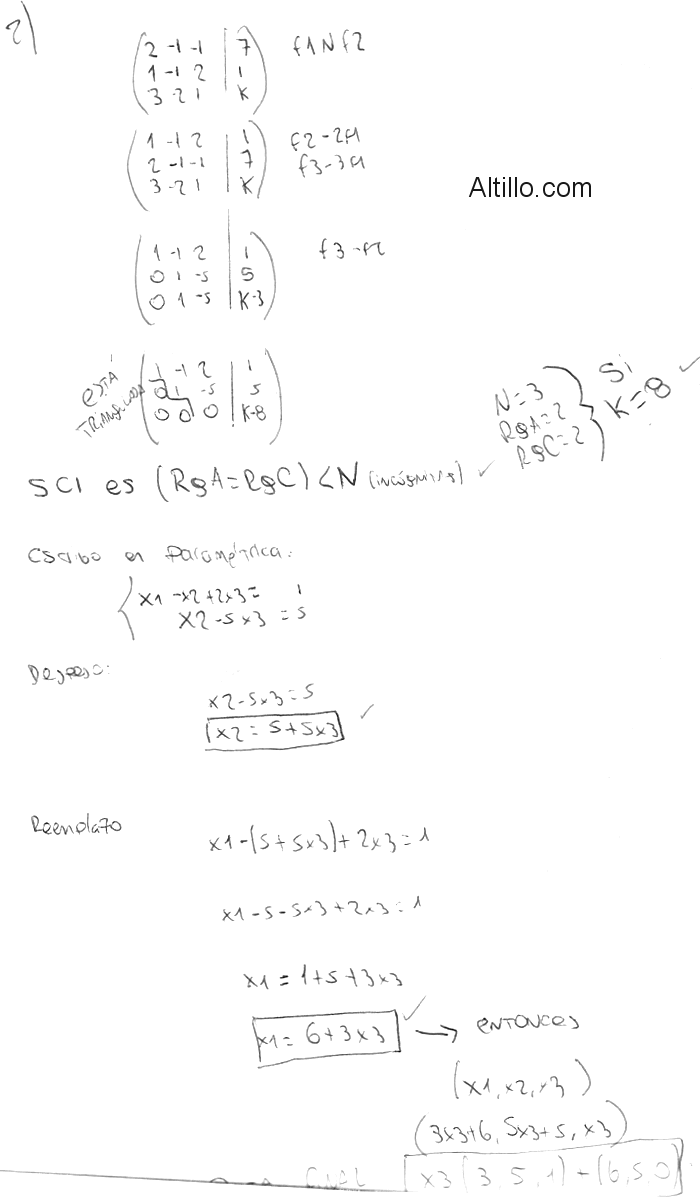 2)
2 -1 -1 | 7 f1 N f2
1 -1 2 | 1
3 -2 1 | K
1 -1 2 | 1 f2-2f1
2 -1 -1 | 7 f3-3f1
3 -2 1 | K
Altillo.com
1 -1 2 | 1 f3-f2
0 1 -5 | 5
0 1 -5 | K-3
ESTÁ
1 -1 2 | 1
0 1 -5 | 5
0 0 0 | K-8
N=3
RgA=2
RgC=2
Si
K=8 ✓
SCI es (RgA=RgC)<N (incógnitas) ✓
Escribo en Paramétrica:
x1 -x2+2x3= 1
x2-5x3 =5
Despejo:
x2-5x3=5
x2= 5+5x3 ✓
Reemplazo
x1-(5+5x3)+2x3=1
x1-5-5x3+2x3=1
x1=1+5+3x3
x1= 6+3x3 ✓ → ENTONCES
(x1,x2,x3)
(3x3+6, 5x3+5, x3)
x3(3,5,1)+(6,5,0)